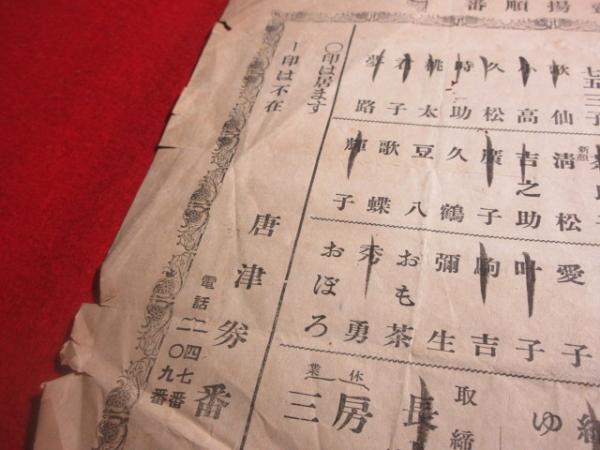 揚順番
七五三子
歌仙
小高
久松
時助
桃太
君子
夢路
新顔
清松
吉之助
廣子
久鶴
豆八
歌蝶
輝子
愛子
叶子
駒吉
彌生
おも茶
秀勇
おぼろ
ゆ
取締
長
休業
房
三
〇印は居ます
ー印は不在
唐津券番
電話二四七番
二〇九番